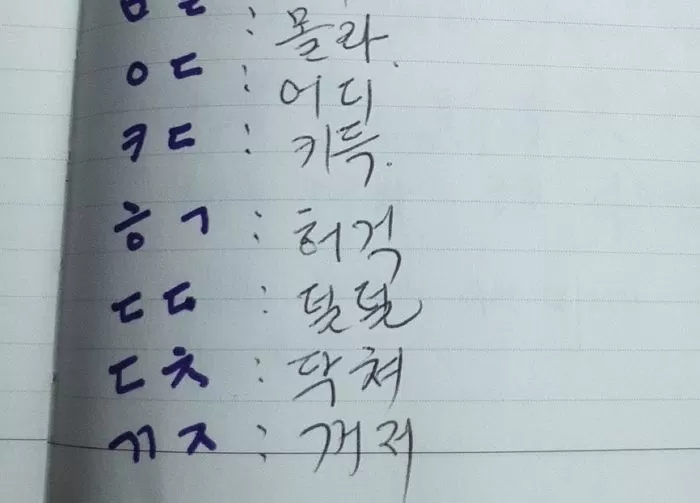 ㅁㄹ : 몰라.
ㅇㄷ : 어디
ㅋㄷ : 키득.
ㅎㄱ : 허걱
ㄷㄷ : 덜덜
ㄷㅊ : 닥쳐
ㄲㅈ : 꺼져